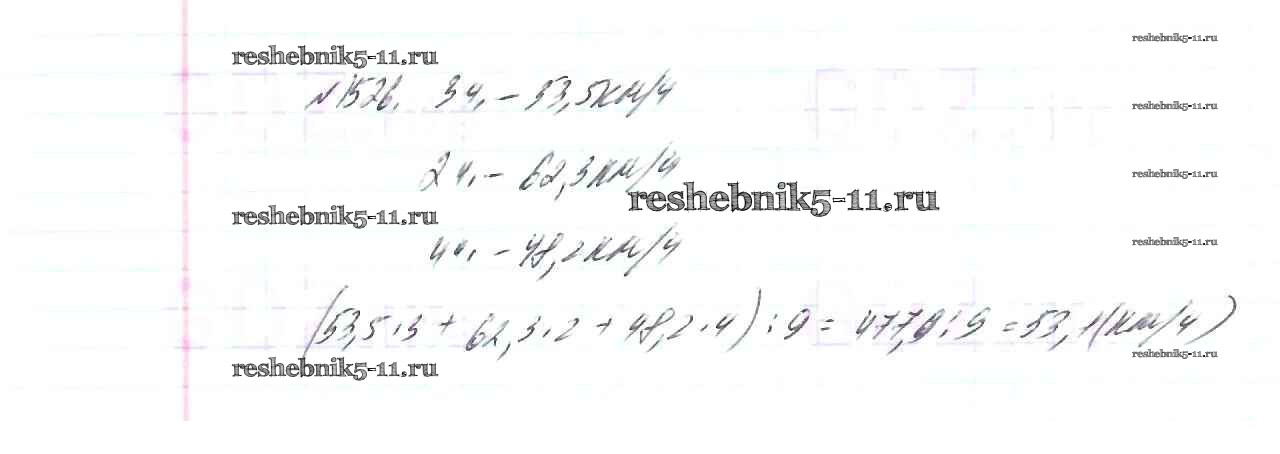 reshebnik5-11.ru
reshebnik5-11.ru
№1526. 3ч. – 53,5км/ч
reshebnik5-11.ru
2ч. – 62,3км/ч
reshebnik5-11.ru
reshebnik5-11.ru
reshebnik5-11.ru
4ч. – 48,2км/ч
reshebnik5-11.ru
(53,5·3 + 62,3·2 + 48,2·4) : 9 = 477,9:9 = 53,1(км/ч)
reshebnik5-11.ru
reshebnik5-11.ru